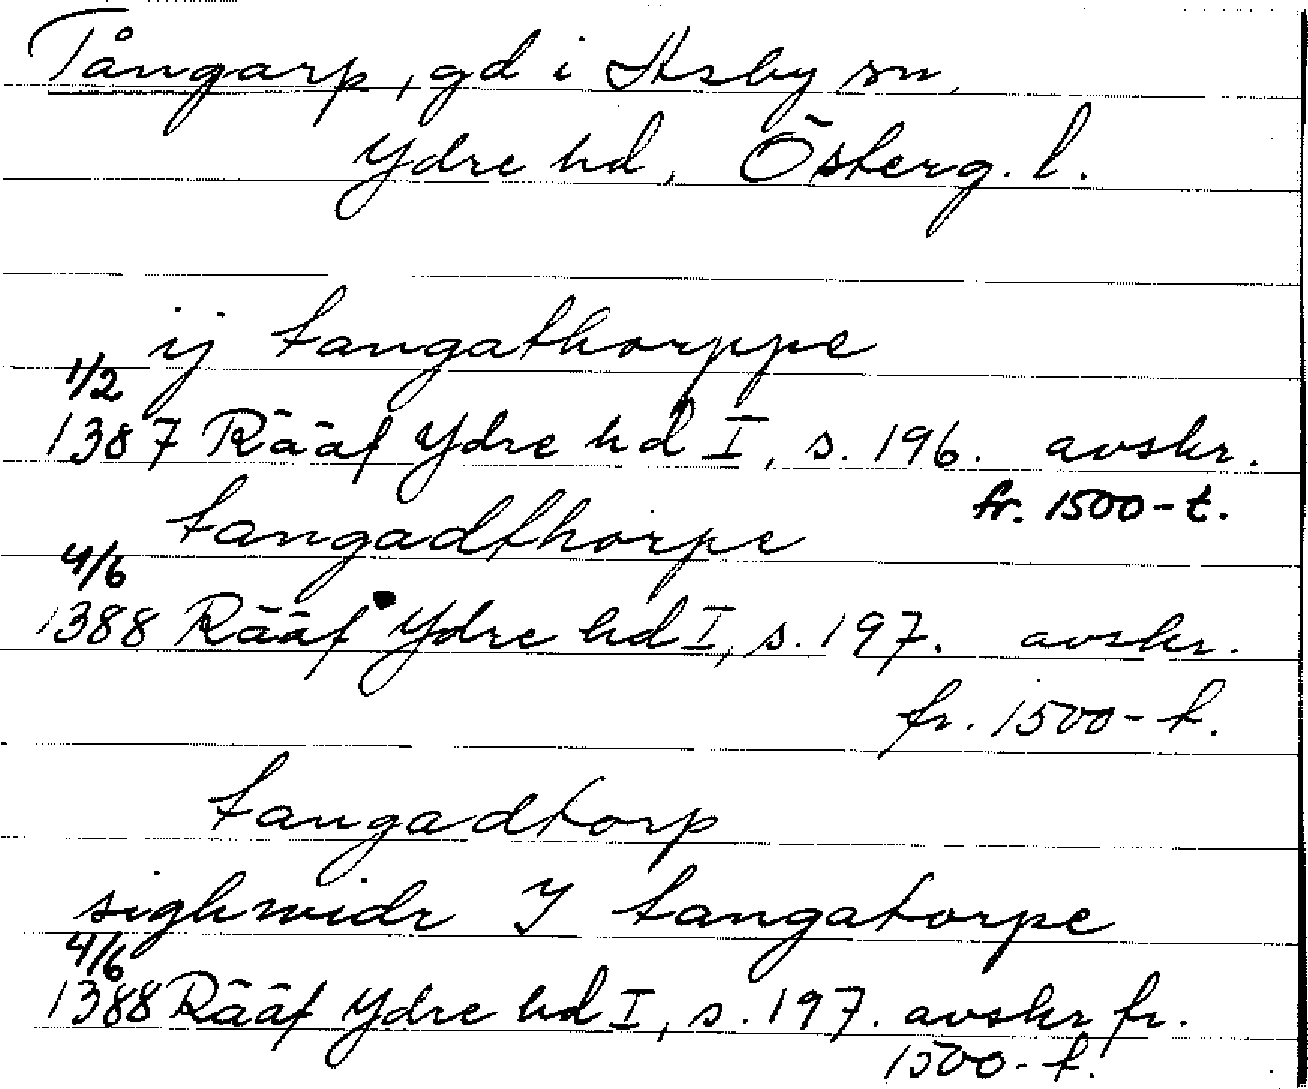 Tångarp, gd i Asby sn,
Ydre hd, Österg. l.
ij tangathorppe
1/2
1387 Rääf Ydre hd I, s. 196. avskr.
fr. 1500-t.
tangadthorpe
4/6
1388 Rääf Ydre hd I, s. 197. avskr.
fr. 1500-t.
tangadtorp
sighwidr J tangatorpe
4/6
1388 Rääf Ydre hd I, s. 197. avskr fr.
1500-t.